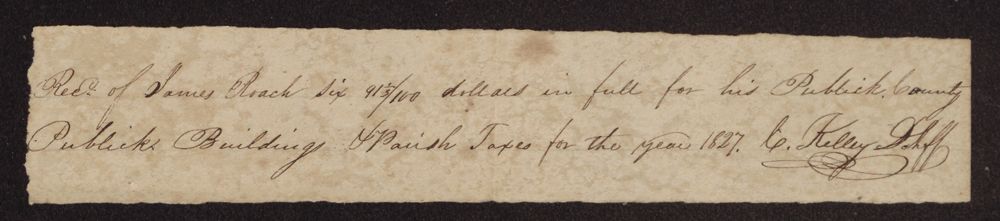 Recd. of James Roach six 91 3/100 dollars in full for his Publick, County
Publick Buildings & Parish Taxes for the year 1827. C. Kelley D Shff